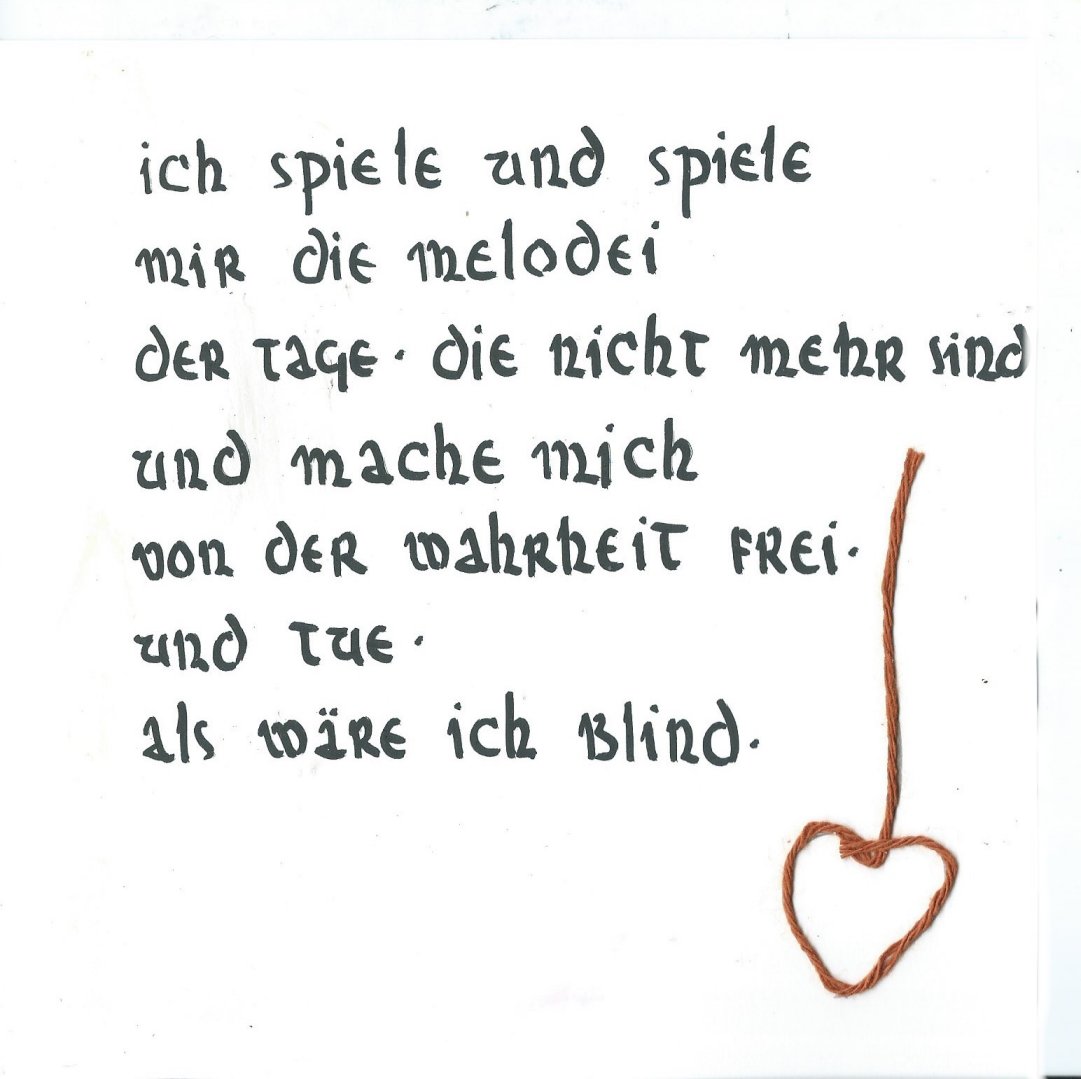 ich spiele und spiele
mir die melodei
der tage· die nicht mehr sind
und mache mich
von der wahrheit frei·
und tue·
als wäre ich blind·